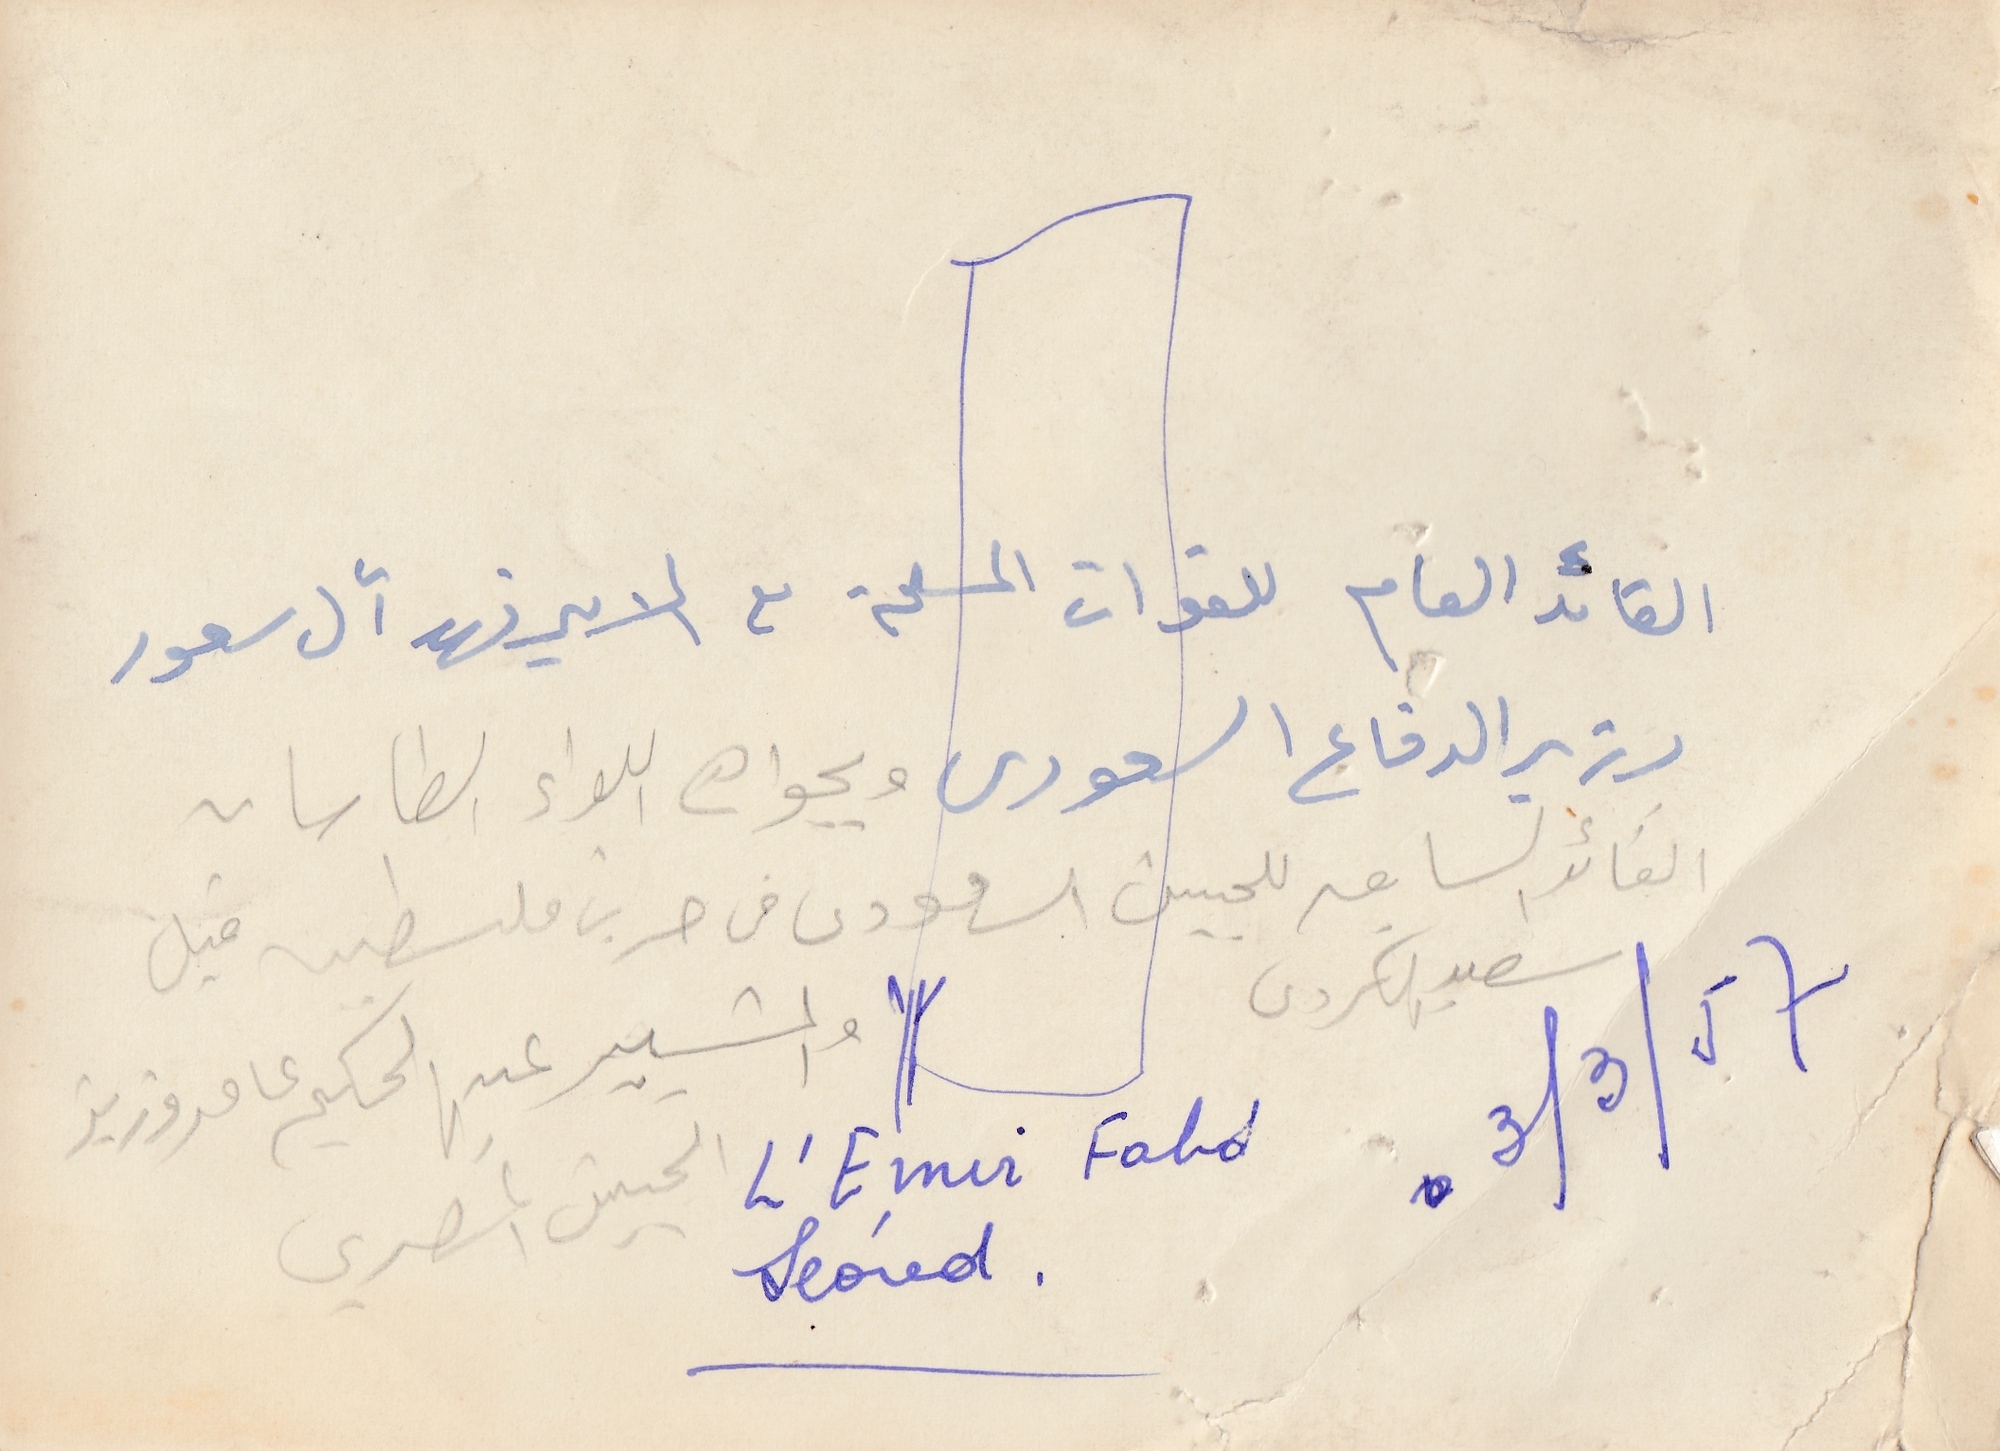 القائد العام للقوات المسلحة مع الامير فهد آل سعود
وزير الدفاع السعودى وبجواهم اللواء
القائد السابق للجيش السعودى فى حرب فلسطين قبل
سعيد الكردى
والمشير عبد الحكيم عامر وزير
الجيش المصرى
3/3/57
L'Emir Fahd
Seóud.